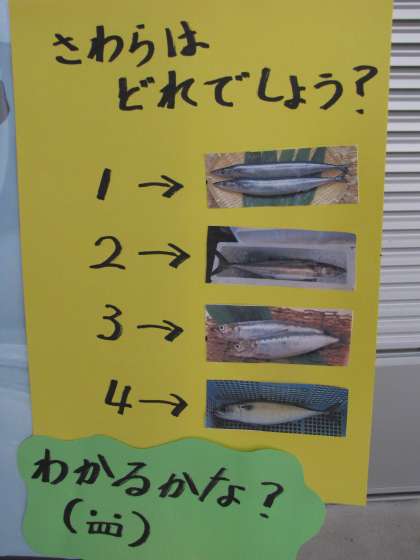 さわらは
どれでしょう?
1→
2→
3→
4→
わかるかな?
(皿)